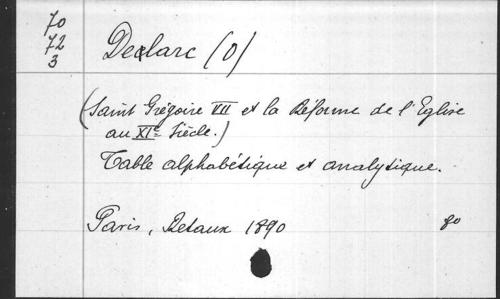 70
72
3
Declarc (O)
(Saint Grégoire VII et la Réforme de l'Eglise
au XIe Siècle.)
Table alphabétique et analytique.
Paris, Retaux 1890 8o